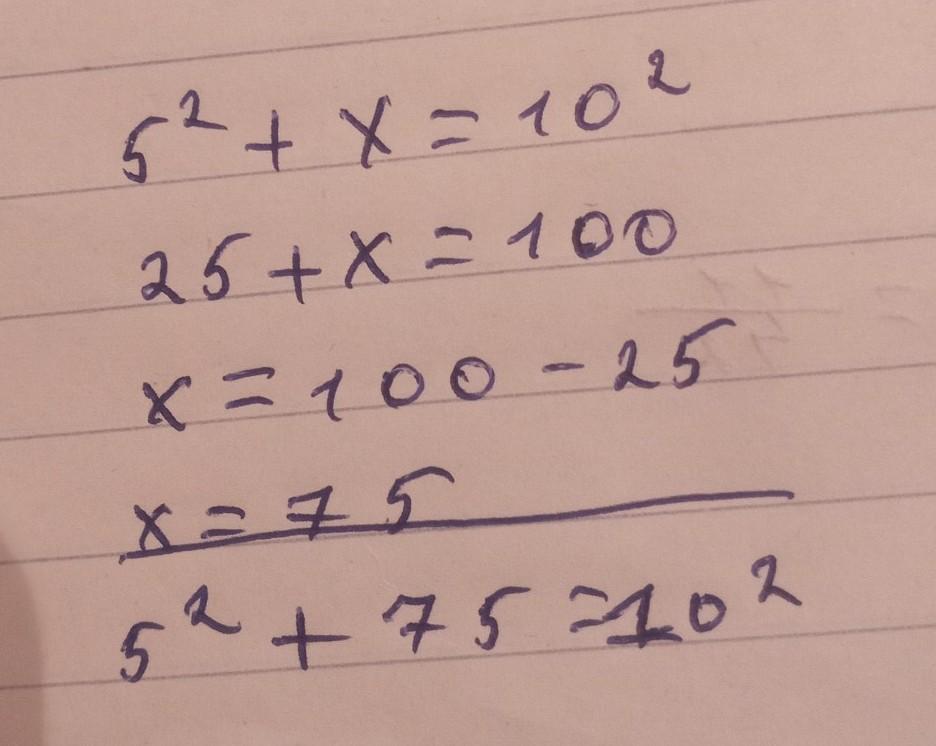 5² + x = 10²
25 + x = 100
x = 100 - 25
x = 75
5² + 75 = 10²